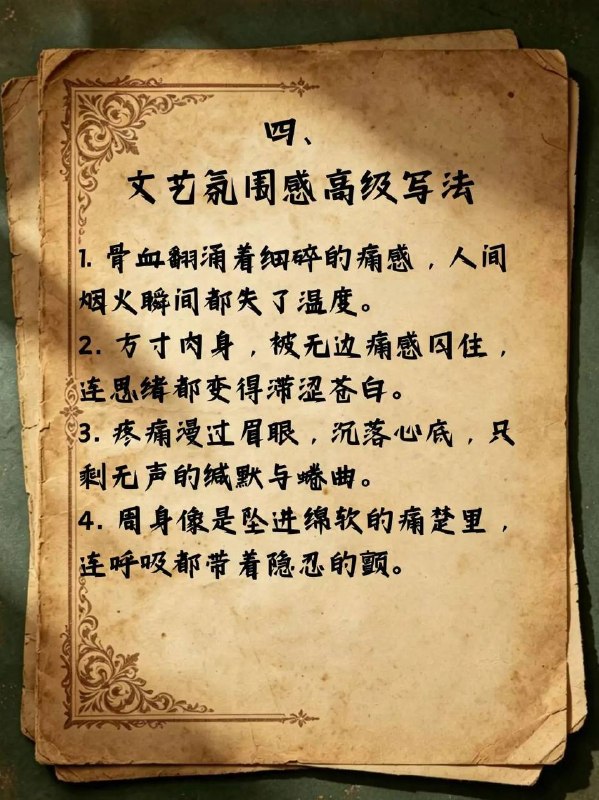 四、
文艺氛围感高级写法
1. 骨血翻涌着细碎的痛感，人间
烟火瞬间都失了温度。
2. 方寸肉身，被无边痛感囚住，
连思绪都变得滞涩苍白。
3. 疼痛漫过眉眼，沉落心底，只
剩无声的缄默与蜷曲。
4. 周身像是坠进绵软的痛楚里，
连呼吸都带着隐忍的颤。